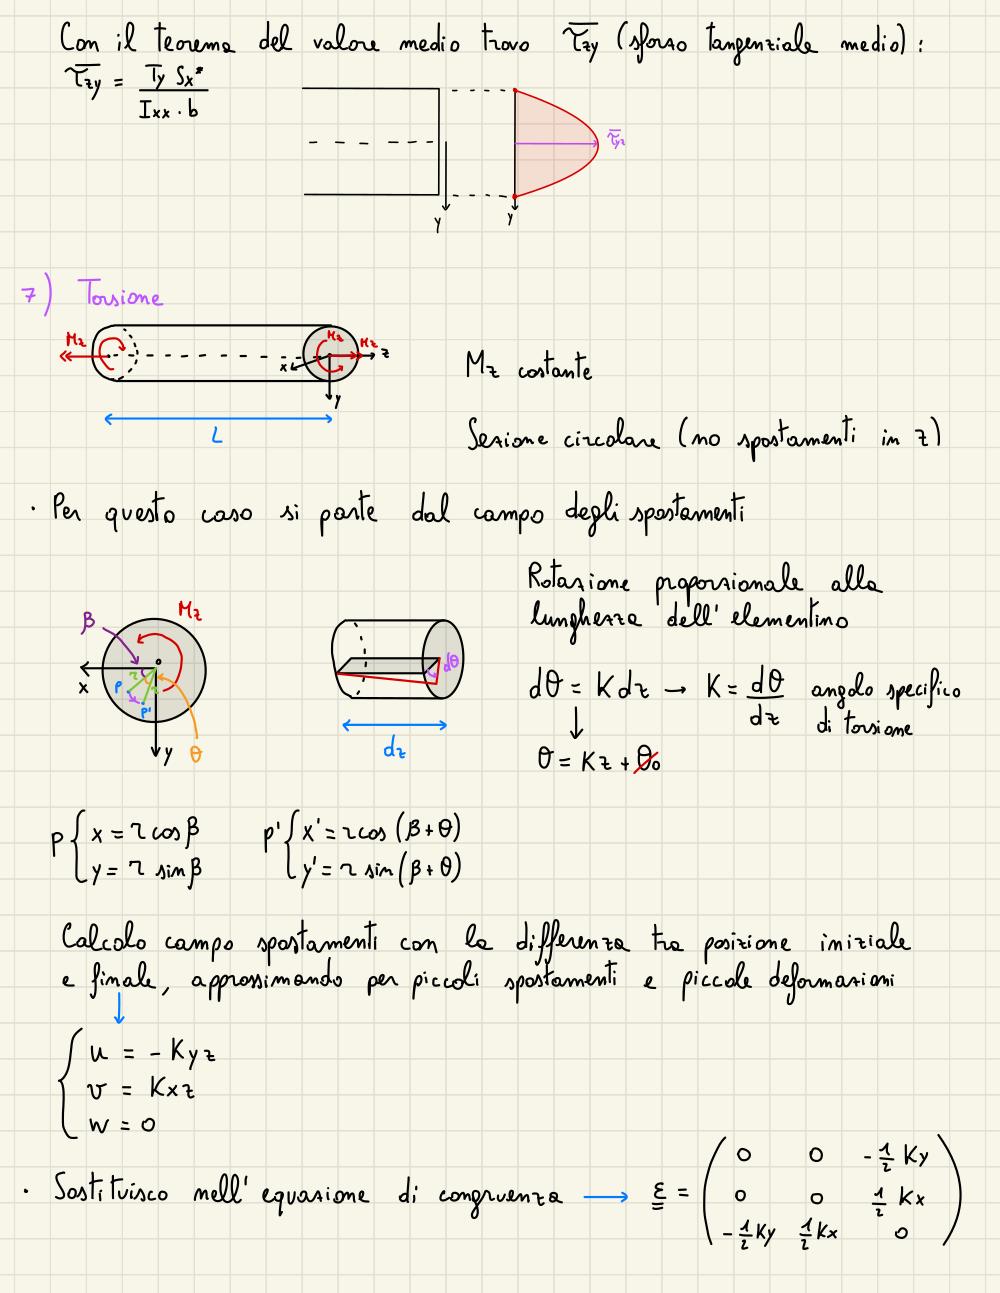 Con il teorema del valore medio trovo τ̅zy (sforzo tangenziale medio):
τ̅zy = Ty Sx* / Ixx · b
τ̅yz
y y
7) Torsione
Mz Mz Mz z
x
y
L
Mz costante
Sezione circolare (no spostamenti in z)
· Per questo caso si parte dal campo degli spostamenti
Rotazione proporzionale alla
lunghezza dell'elementino
β Mz
o
x r P P'
y θ
dθ
dz
dθ = K dz → K = dθ/dz angolo specifico
di torsione
↓
θ = Kz + θ₀
P { x = r cos β
y = r sin β
P' { x' = r cos (β + θ)
y' = r sin (β + θ)
Calcolo campo spostamenti con la differenza tra posizione iniziale
e finale, approssimando per piccoli spostamenti e piccole deformazioni
↓
{ u = - Kyz
v = Kxz
w = 0
· Sostituisco nell'equazione di congruenza → ε =
( 0 0 -1/2 Ky
0 0 1/2 Kx
-1/2 Ky 1/2 Kx 0 )